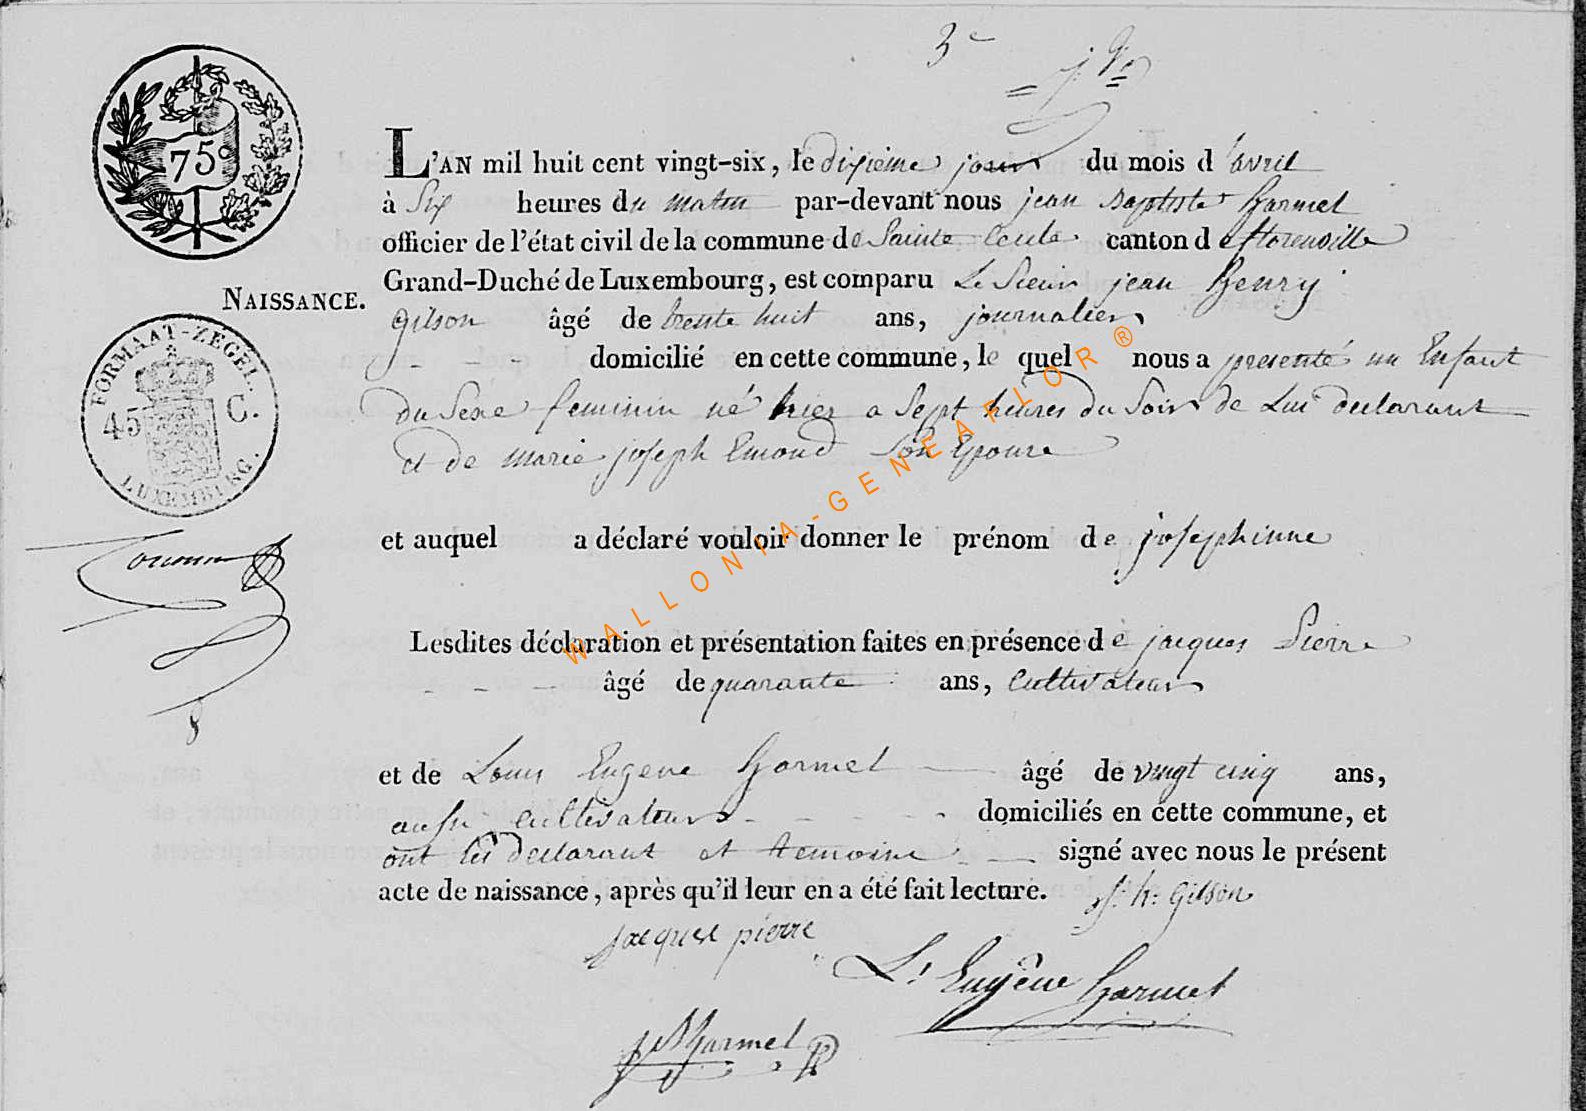 3e
75c
L'AN mil huit cent vingt-six, le dixieme jour du mois d'avril
à Six heures du matin par-devant nous jean Baptiste Harmel
officier de l'état civil de la commune de Sainte Cecile canton de florenville
Grand-Duché de Luxembourg, est comparu Le Sieur jean Henry
NAISSANCE.
gilson âgé de trente huit ans, journalier
FORMAAT-ZEGEL.
45 C.
LUXEMBURG.
domicilié en cette commune, le quel nous a presenté un Enfant
du Sexe feminin né hier a Sept heures du Soir de Lui declarant
et de marie joseph Emond Son Epouse
et auquel a déclaré vouloir donner le prénom de josephinne
Lesdites déclaration et présentation faites en présence de jacques Pierre
âgé de quarante ans, Cultivateur
et de Louis Eugene Harmel âgé de vingt cinq ans,
aussi cultivateur domiciliés en cette commune, et
ont les declarant et temoins signé avec nous le présent
acte de naissance, après qu'il leur en a été fait lecture. j. h. Gilson
jacques pierre
Ls Eugêne Harmel
JB Harmel
WALLONIA-GENEARLOR ®